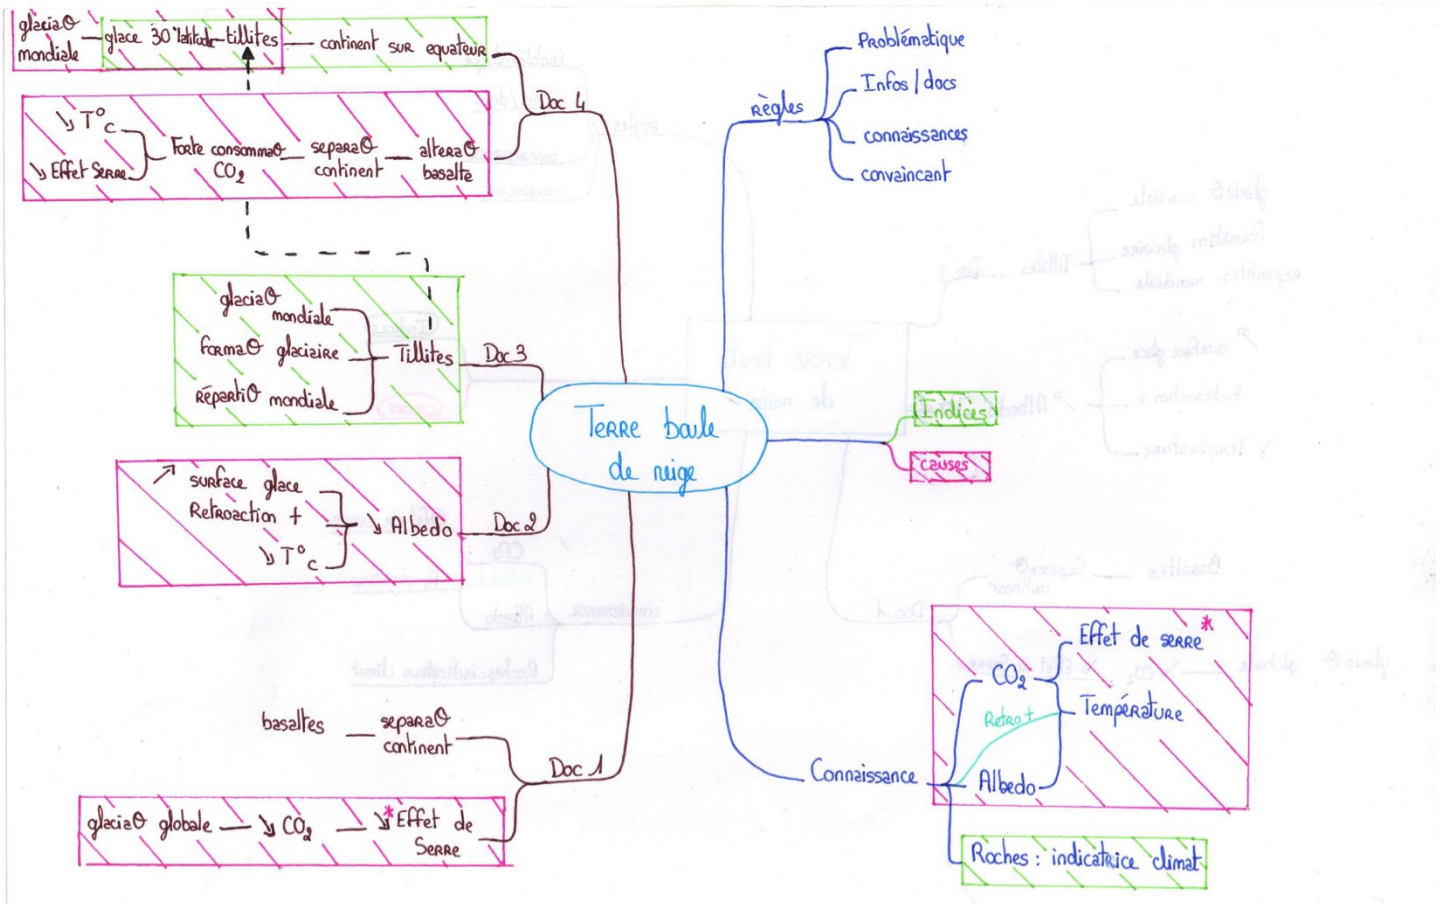 glaciaΘ
mondiale
glace 30° latitude
tillites
continent sur equateur
Doc 4
↘ T°C
↘ Effet Serre
Forte consommaΘ
CO₂
separaΘ
continent
alteraΘ
basalte
glaciaΘ
mondiale
formaΘ glaciaire
RépartiΘ mondiale
Tillites
Doc 3
↗ surface glace
Retroaction +
↘ T°C
↘ Albedo
Doc 2
basaltes
separaΘ
continent
Doc 1
glaciaΘ globale
↘ CO₂
↘* Effet de
Serre
Terre boule
de neige
Règles
Problématique
Infos / docs
connaissances
convaincant
Indices
causes
Connaissance
CO₂
Effet de serre *
Température
Retro +
Albedo
Roches : indicatrice climat